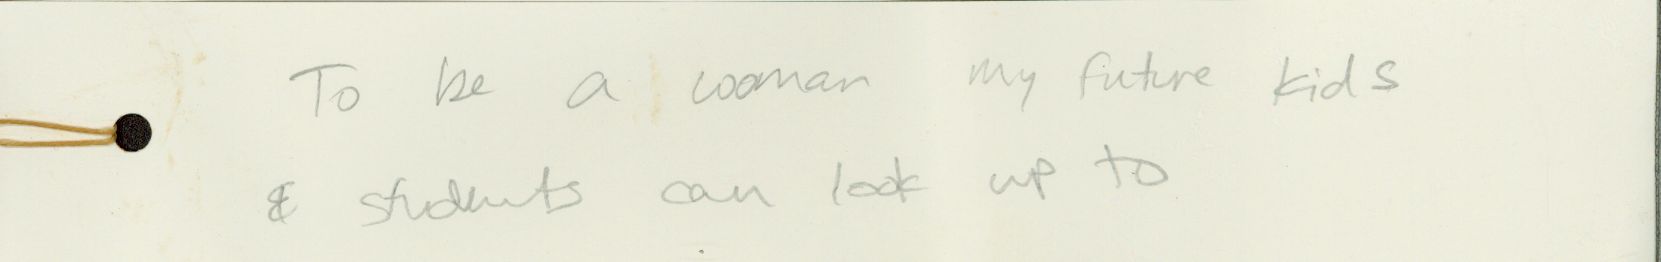 To be a woman my future kids
& students can look up to